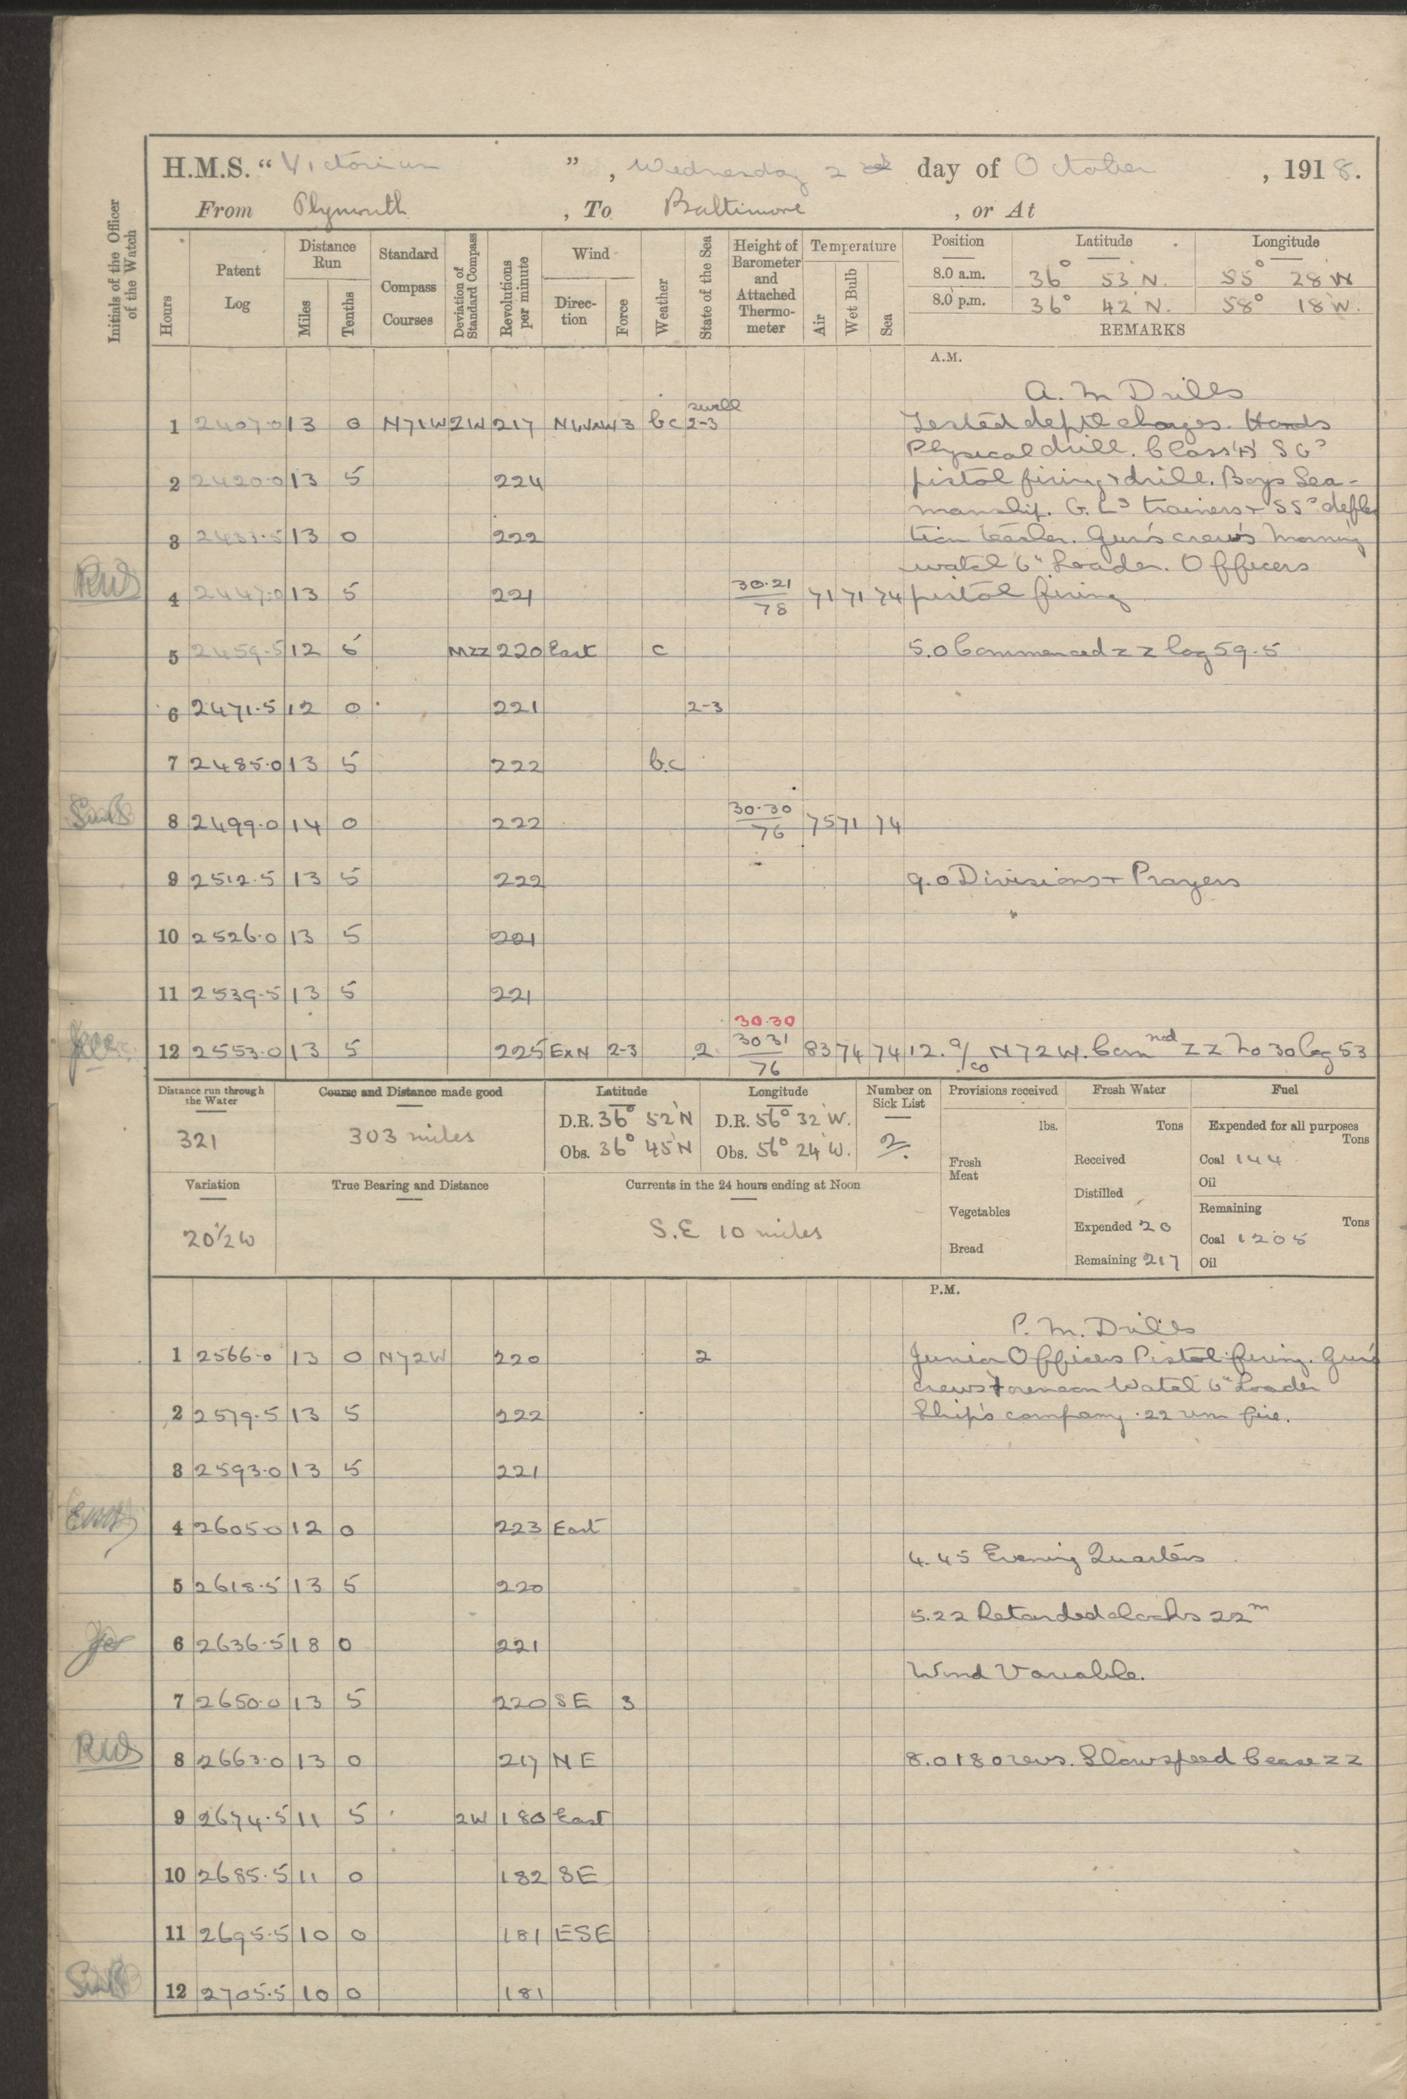 H.M.S. “ Victorian ” , Wednesday 2nd day of October , 1918.
From Plymouth , To Baltimore , or At
Initials of the Officer of the Watch
Hours Patent Log Distance Run Miles Tenths Standard Compass Courses Deviation of Standard Compass Revolutions per minute Wind Direc- tion Force Weather State of the Sea Height of Barometer and Attached Thermo- meter Temperature Air Wet Bulb Sea
Position Latitude Longitude
8.0 a.m. 36° 53' N. 55° 28' W
8.0 p.m. 36° 42' N. 58° 18' W.
REMARKS
A.M.
A. M Drills
swell
1 2407.0 13 0 N71W 2W 217 NWNW 3 bc 2-3 Tested depth charges. Hands
Physical drill. Class 'A' SG's
2 2420.0 13 5 224 pistol firing & drill. Boys Sea-
manship. G.L's trainers & SS's deflec
3 2433.5 13 0 222 tion teacher. Gun's crews Morning
watch 6" Loader. Officers
4 2447.0 13 5 221 30.21/78 71 71 74 pistol firing
5 2459.5 12 5 MZZ 220 East c 5.0 Commenced ZZ log 59.5
6 2471.5 12 0 221 2-3
7 2485.0 13 5 222 b.c
8 2499.0 14 0 222 30.30/76 75 71 74
9 2512.5 13 5 222 9.0 Divisions + Prayers
10 2526.0 13 5 221
11 2539.5 13 5 221
30.30
12 2553.0 13 5 225 ExN 2-3 2 30 31/76 83 74 74 12. a/co N72W. Com nced ZZ No 30 log 53
Distance run through the Water Course and Distance made good Latitude Longitude Number on Sick List Provisions received Fresh Water Fuel
321 303 miles D.R. 36° 52' N D.R. 56° 32' W. 2.
Obs. 36° 45' N Obs. 56° 24' W.
lbs. Tons Expended for all purposes Tons
Fresh Meat Received Coal 144
Oil
Variation True Bearing and Distance Currents in the 24 hours ending at Noon
20½W S.E 10 miles
Distilled Remaining Tons
Vegetables Expended 20 Coal 1205
Bread Remaining 217 Oil
P.M.
P. M. Drills
1 2566.0 13 0 N72W 220 2 Junior Officers Pistol firing. Gun's
crews Forenoon Watch 6" Loader
2 2579.5 13 5 222 Ship's company .22 r/m fire.
3 2593.0 13 5 221
4 2605.0 12 0 223 East
4.45 Evening Quarters
5 2618.5 13 5 220
5.22 Retarded clocks 22m
6 2636.5 18 0 221
Wind Variable.
7 2650.0 13 5 220 SE 3
8 2663.0 13 0 217 NE 8.0 180 revs. Slow speed Cease ZZ
9 2674.5 11 5 2W 180 East
10 2685.5 11 0 182 SE
11 2695.5 10 0 181 ESE
12 2705.5 10 0 181